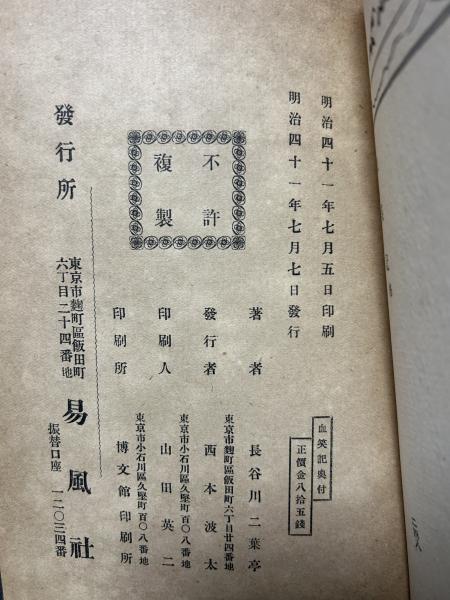 血笑記奧付
正價金八拾五錢
明治四十一年七月五日印刷
明治四十一年七月七日發行
不許
複製
著者
長谷川二葉亭
東京市麴町區飯田町六丁目廿四番地
發行者
西本波太
東京市小石川區久堅町百〇八番地
印刷人
山田英二
東京市小石川區久堅町百〇八番地
印刷所
博文館印刷所
發行所
東京市麴町區飯田町
六丁目二十四番地
易風社
振替口座一二〇三四番